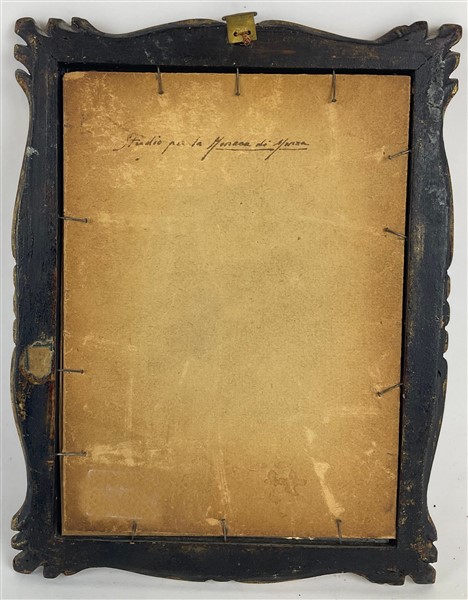 Studio per la Monaca di Monza